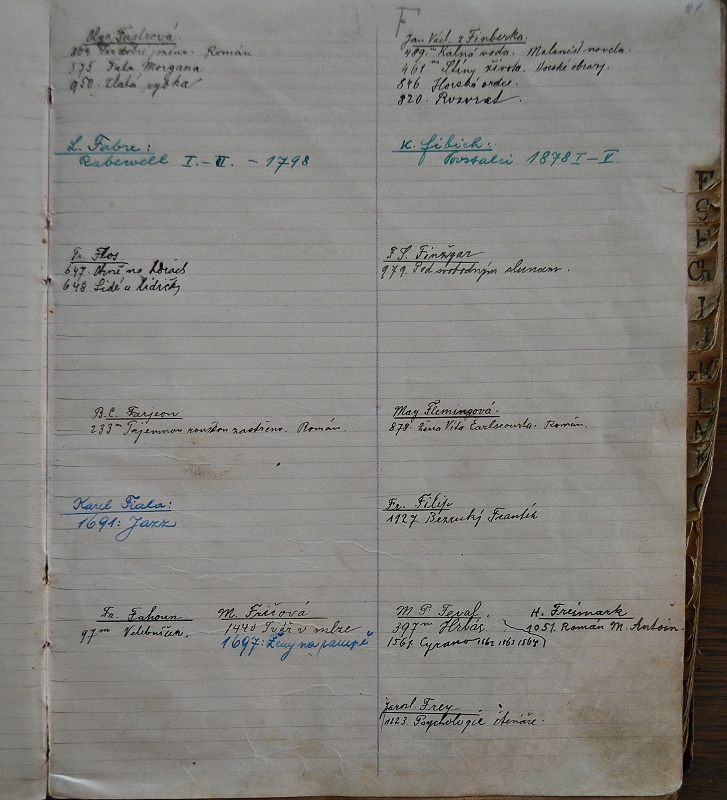 F
81
Olga Fastrová
864. Pro dobré jméno. Román
575 Fata Morgana
950. Zlatá rybka
Jan Václ. z Finberka.
489.m Kalná voda. Maloměst. novela.
461 m Stíny života. Horské obrazy.
846 Horské srdce.
820. Rozvrat.
L. Fabre:
Rabewell I.-II. - 1798
K. Fibich:
Povstalci 1878 I-V.
Fr. Flos
647. Ohně na horách
648 Lidé a lidičky
F. S. Finžgar
979. Pod svobodným sluncem.
B.C. Farjeon
233m Tajemnou rouškou zastřeno. Román.
May Flemingová.
878. Žena Vita Earlscourta. Román.
Karel Fiala:
1691: Jazz
Fr. Filip
1127. Bezruký Frantík
Fr. Fahoun
97m Velebníček.
M. Fričová
1440 Tvář v mlze
1697: Ženy na pampě
M. P. Feval.
397m Hrbáč.
1561. Cyrano 1562 1563 1564)
H. Freimark
1051. Román M. Antoin.
Jarosl. Frey
1123. Psychologie čtenáře.
F
G
H
Ch
I
J
K
L
M
N